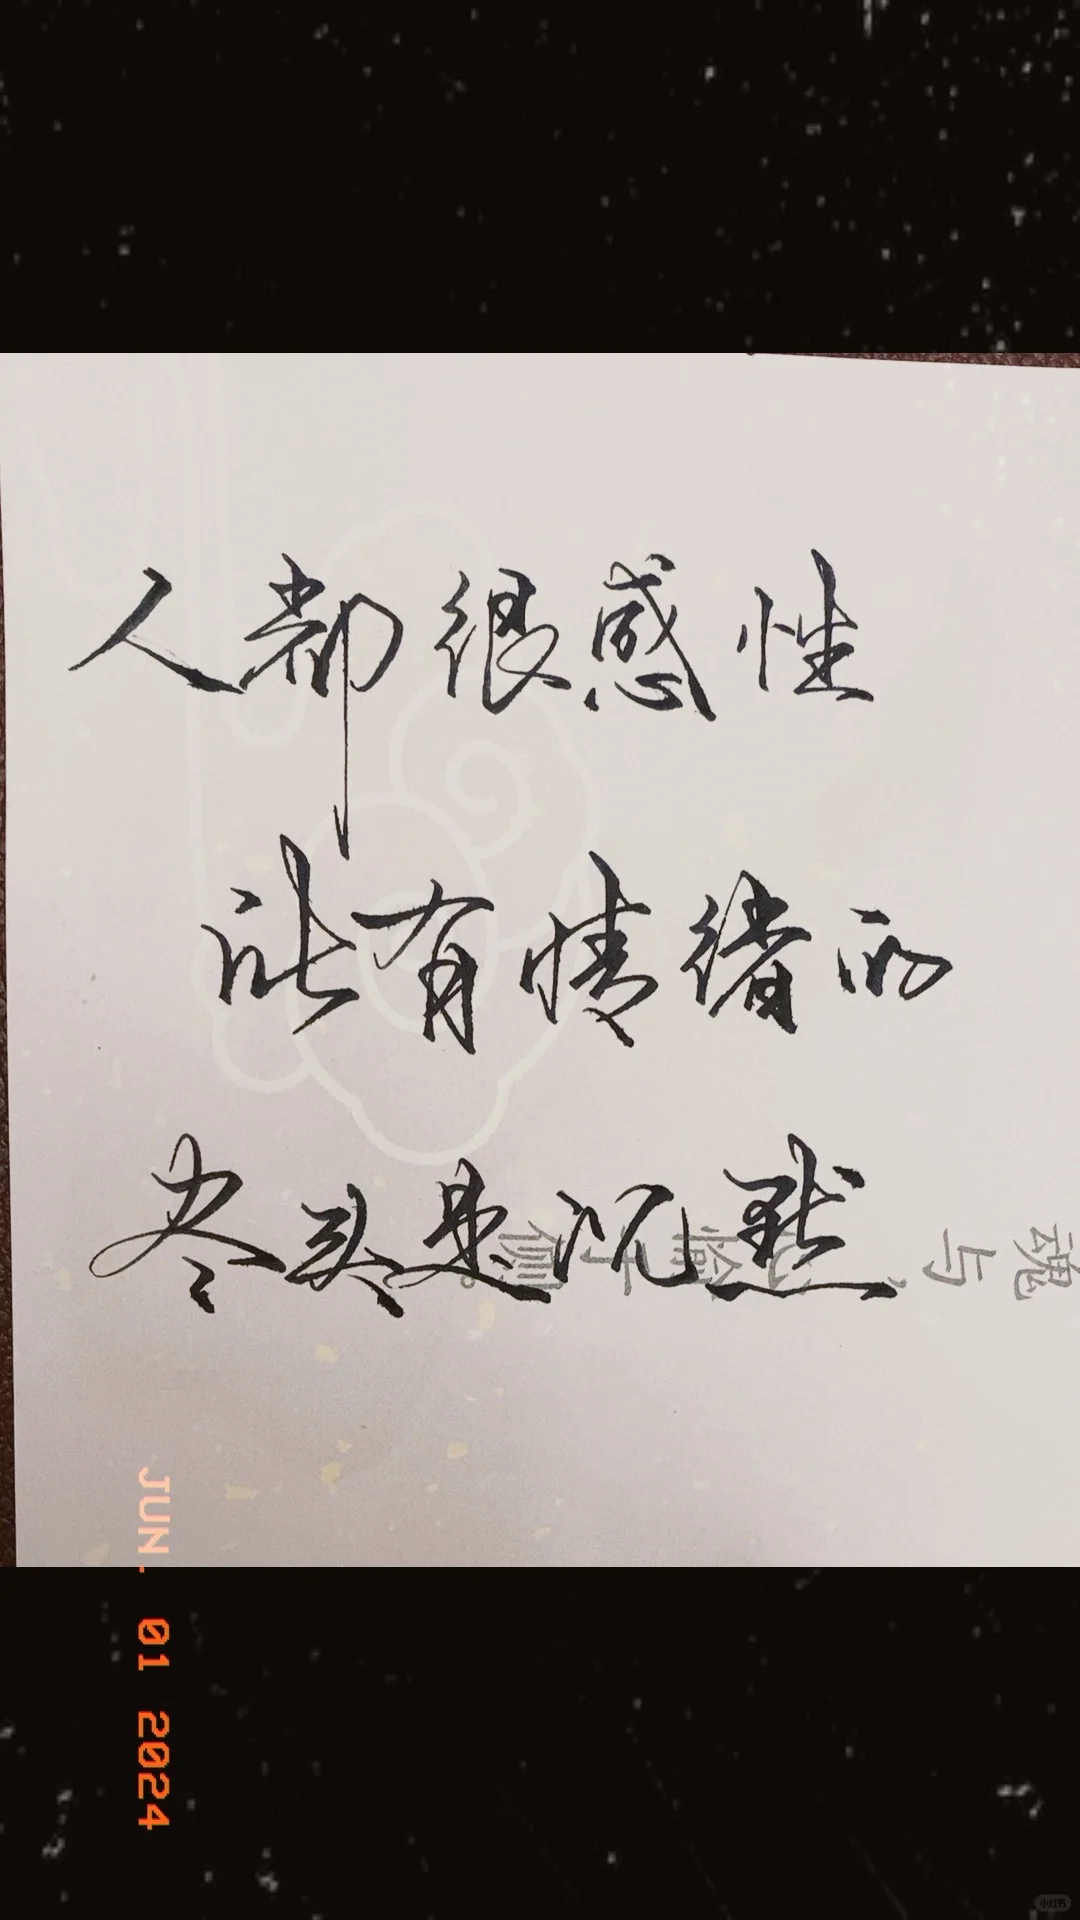 人都很感性
所有情绪的
尽头是沉默
魂
与
JUN. 01 2024
小红书